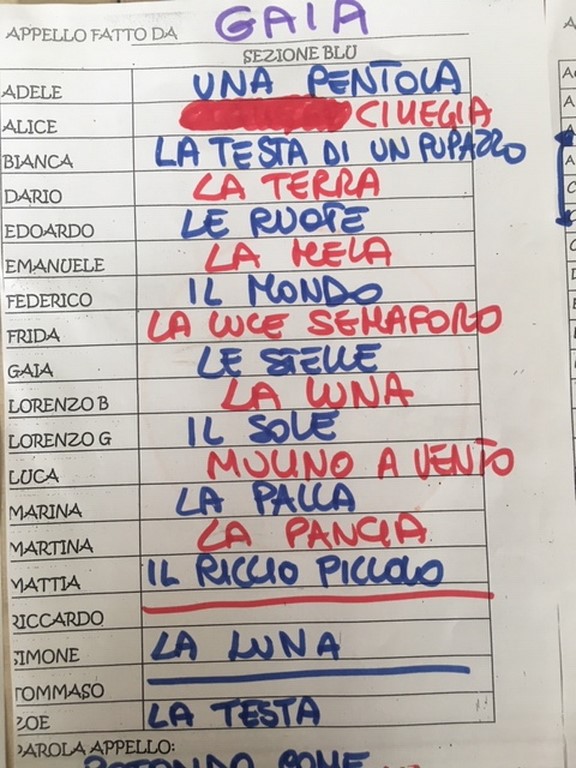 APPELLO FATTO DA GAIA
SEZIONE BLU
ADELE UNA PENTOLA
ALICE CILIEGIA
BIANCA LA TESTA DI UN PUPAZZO
DARIO LA TERRA
EDOARDO LE RUOTE
EMANUELE LA MELA
FEDERICO IL MONDO
FRIDA LA LUCE SEMAFORO
GAIA LE STELLE
LORENZO B LA LUNA
LORENZO G IL SOLE
LUCA MULINO A VENTO
MARINA LA PALLA
MARTINA LA PANCIA
MATTIA IL RICCIO PICCOLO
RICCARDO
SIMONE LA LUNA
TOMMASO
ZOE LA TESTA
PAROLA APPELLO:
ROTONDO COME